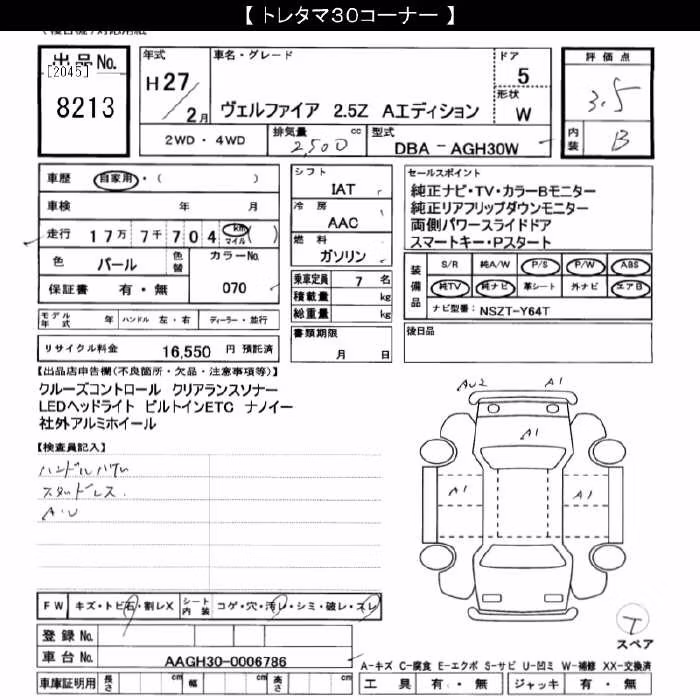 【 トレタマ30コーナー 】
出品No.
[2045]
8213
年式
H27/2月
車名・グレード
ヴェルファイア 2.5Z Aエディション
ドア
5
形状
W
評価点
3.5
内装
B
2WD・4WD
排気量
2,500 cc
型式
DBA－AGH30W
車歴 自家用・( )
車検 年 月
走行 17万7千704 km マイル( )
色 パール 色替 カラーNo. 070
保証書 有・無
モデル年式 年 ハンドル 左・右 ディーラー・並行
リサイクル料金 16,550 円 預託済
シフト
IAT
冷房
AAC
燃料
ガソリン
乗車定員 7 名
積載量 kg
総重量 kg
書類期限
月 日
セールスポイント
純正ナビ・TV・カラーBモニター
純正リアフリップダウンモニター
両側パワースライドドア
スマートキー・Pスタート
装備品
S/R 純A/W P/S P/W ABS
純TV 純ナビ 革シート 外ナビ エアB
ナビ型番： NSZT-Y64T
後日品
【出品店申告欄(不良箇所・欠品・注意事項等)】
クルーズコントロール クリアランスソナー
LEDヘッドライト ビルトインETC ナノイー
社外アルミホイール
【検査員記入】
ハンドルハゲ
スタッドレス.
A.U
AU2
A1
A1
A1
A1
FW キズ・トビ石・割レX シート内装 コゲ・穴・汚レ・シミ・破レ・スレ
登録No.
車台No. AAGH30-0006786
T
スペア
A-キズ C-腐食 E-エクボ S-サビ U-凹ミ W-補修 XX-交換済
車庫証明用 長さ cm 幅 cm 高さ cm
工具 有・無 ジャッキ 有・無